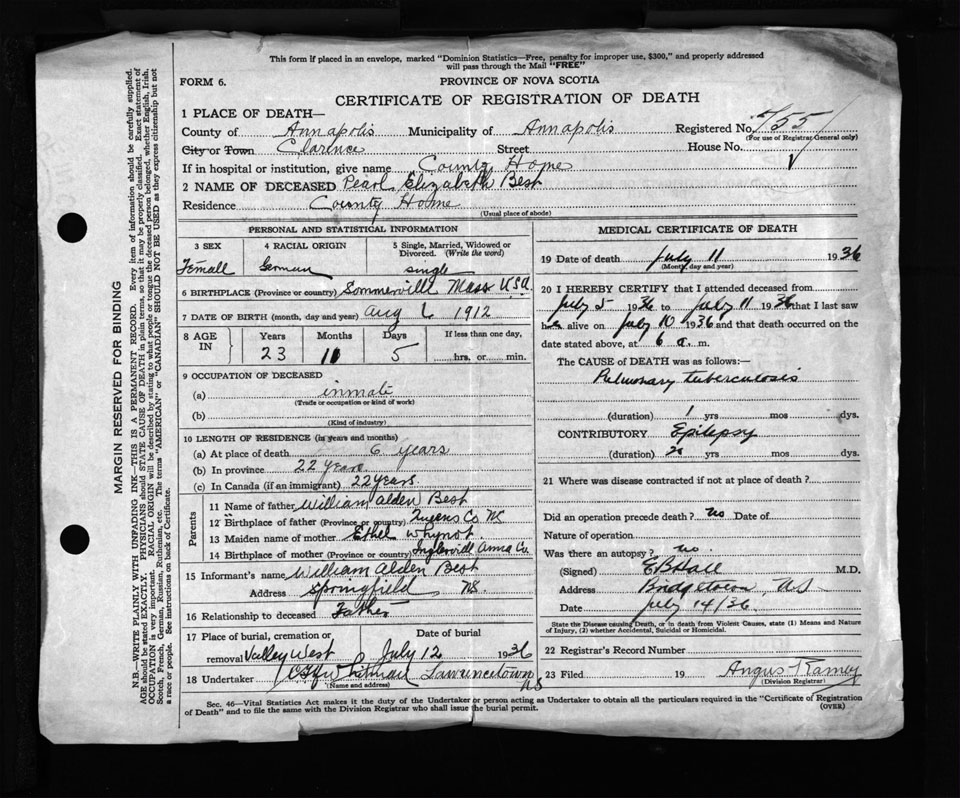 This form if placed in an envelope, marked "Dominion Statistics—Free, penalty for improper use, $300," and properly addressed
will pass through the Mail "FREE"
FORM 6.
PROVINCE OF NOVA SCOTIA
CERTIFICATE OF REGISTRATION OF DEATH
1 PLACE OF DEATH—
County of Annapolis Municipality of Annapolis Registered No. 755
(For use of Registrar General only)
City or Town Clarence Street House No.
If in hospital or institution, give name County Home
2 NAME OF DECEASED Pearl Elizabeth Best
Residence County Home
(Usual place of abode)
PERSONAL AND STATISTICAL INFORMATION
3 SEX 4 RACIAL ORIGIN 5 Single, Married, Widowed or
Divorced. (Write the word)
Female German single
6 BIRTHPLACE (Province or country) Sommerville Mass USA
7 DATE OF BIRTH (month, day and year) Aug 6 1912
8 AGE IN Years Months Days If less than one day,
23 11 5 hrs. or min.
9 OCCUPATION OF DECEASED
(a) inmate
(Trade or occupation or kind of work)
(b)
(Kind of industry)
10 LENGTH OF RESIDENCE (in years and months)
(a) At place of death 6 years
(b) In province 22 years
(c) In Canada (if an immigrant) 22 years
Parents
11 Name of father William Alden Best
12 Birthplace of father (Province or country) Queens Co NS
13 Maiden name of mother Ethel Whynot
14 Birthplace of mother (Province or country) Inglisville Anna Co.
15 Informant's name William Alden Best
Address Springfield NS.
16 Relationship to deceased Father
17 Place of burial, cremation or Date of burial
removal Valley West July 12 1936
18 Undertaker Whitman Lawrencetown
(Name and address) NS
MEDICAL CERTIFICATE OF DEATH
19 Date of death July 11 1936
(Month, day and year)
20 I HEREBY CERTIFY that I attended deceased from
July 5 1936 to July 11 1936 that I last saw
her alive on July 10 1936 and that death occurred on the
date stated above, at 6 a. m.
The CAUSE of DEATH was as follows:—
Pulmonary tuberculosis
(duration) 1 yrs mos dys.
CONTRIBUTORY Epilepsy
(duration) yrs mos dys.
21 Where was disease contracted if not at place of death?
Did an operation precede death? no Date of
Nature of operation
Was there an autopsy? no.
(Signed) E B Hall M.D.
Address Bridgetown, NS
Date July 14/36
State the Disease causing Death, or in death from Violent Causes, state (1) Means and Nature
of Injury, (2) whether Accidental, Suicidal or Homicidal.
22 Registrar's Record Number
23 Filed 19 Angus Ramey
(Division Registrar)
Sec. 46—Vital Statistics Act makes it the duty of the Undertaker or person acting as Undertaker to obtain all the particulars required in the "Certificate of Registration
of Death" and to file the same with the Division Registrar who shall issue the burial permit. (OVER)
MARGIN RESERVED FOR BINDING
N.B.—WRITE PLAINLY WITH UNFADING INK—THIS IS A PERMANENT RECORD. Every item of information should be carefully supplied.
AGE should be stated EXACTLY. PHYSICIANS should STATE CAUSE OF DEATH in plain terms, so that it may be properly classified. Exact statement of
OCCUPATION is very important. RACIAL ORIGIN will be described by stating to what people or tongue the deceased person belonged, whether English, Irish,
Scotch, French, German, Russian, Ruthenian, etc. The terms "AMERICAN" or "CANADIAN" SHOULD NOT BE USED as they express citizenship but not
a race or people. See instructions on back of Certificate.